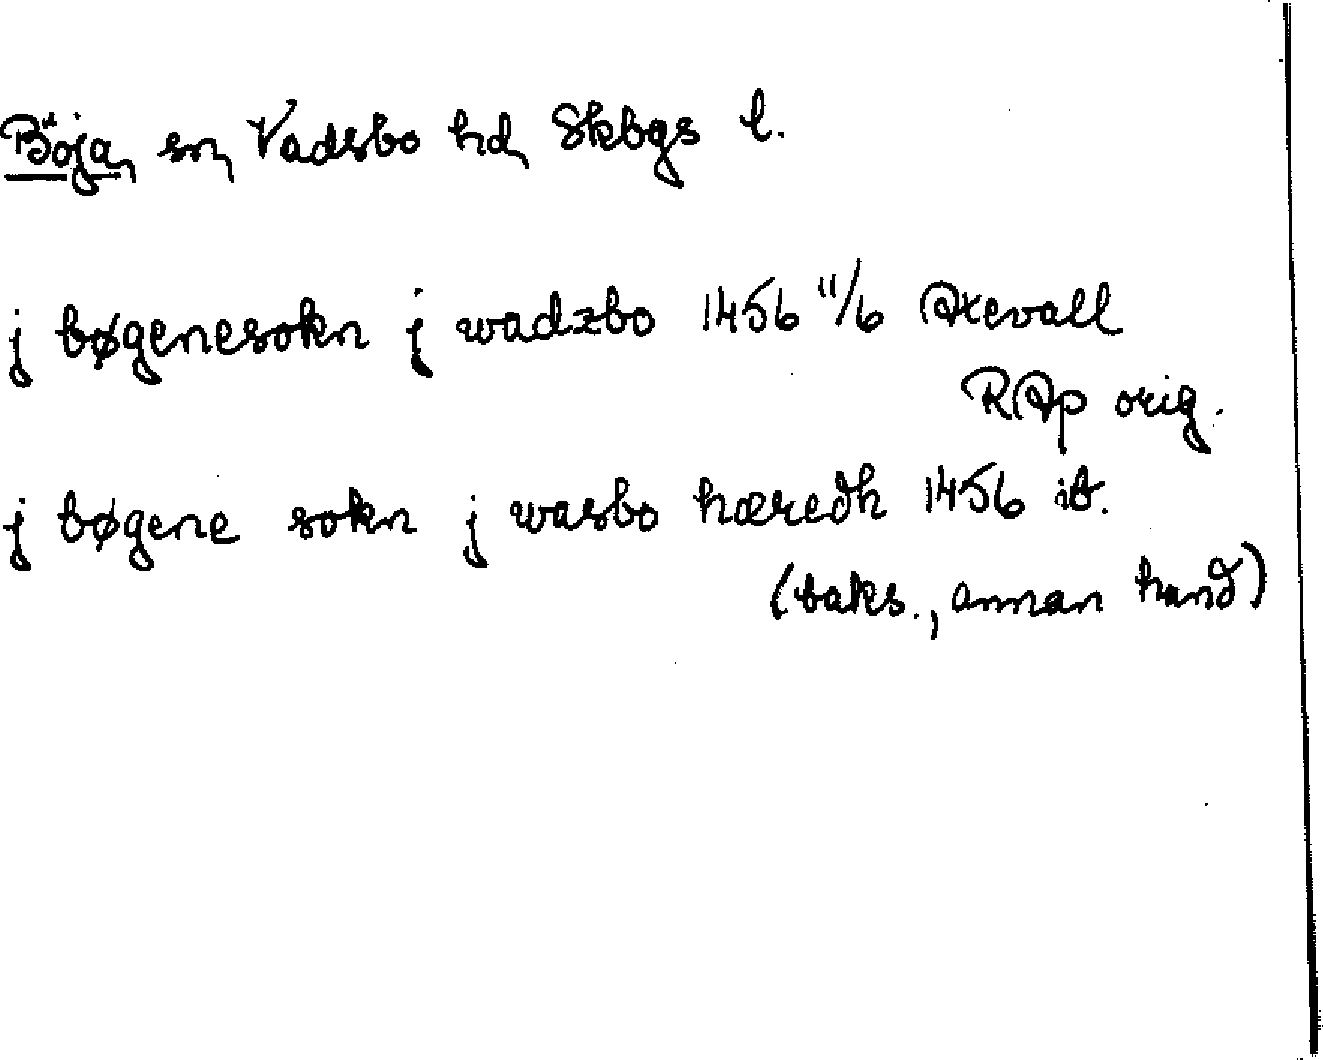 Böja, sn, Vadsbo hd, Skbgs l.
j bøgenesokn j wadzbo 1456 11/6 Axevall
RAp orig.
j bøgene sokn j wasbo hæredh 1456 ib.
(baks., annan hand)